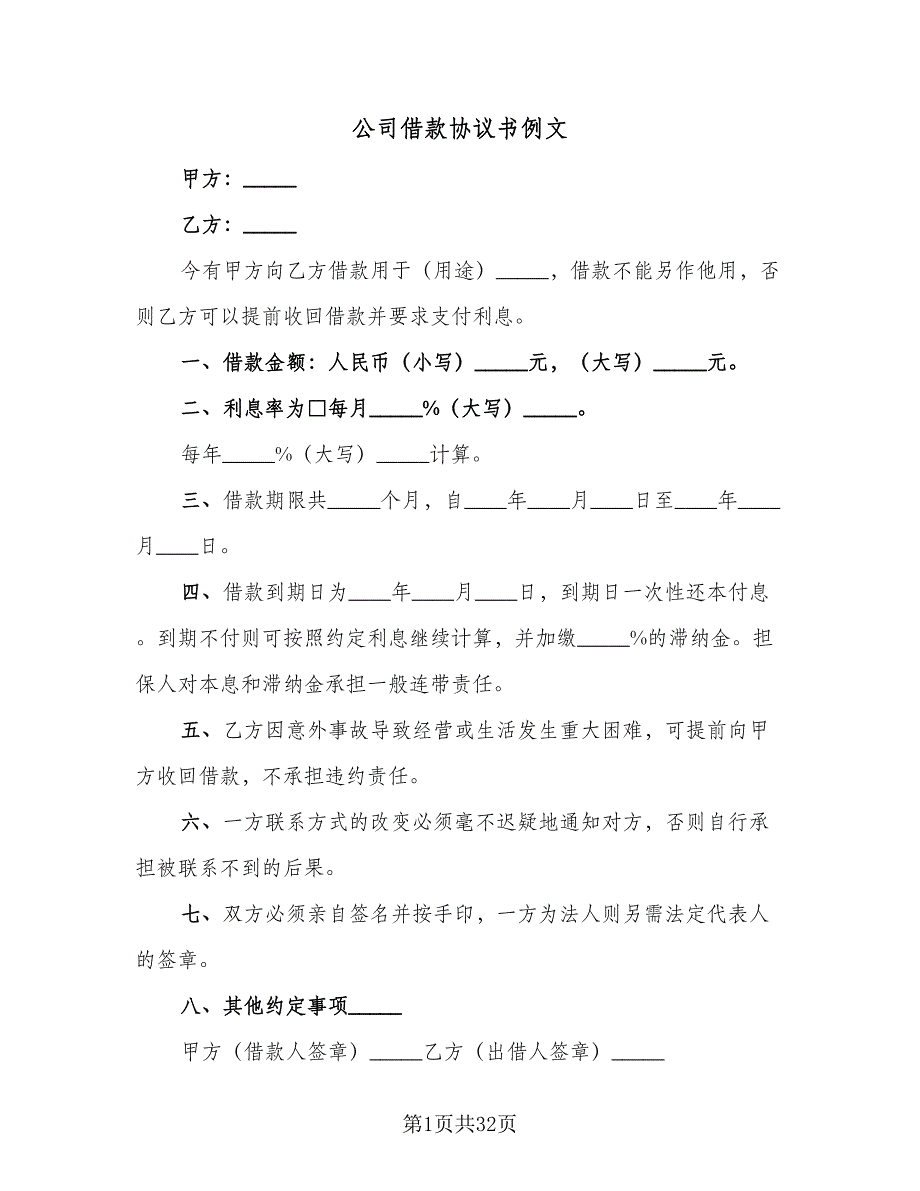 公司借款协议书例文
甲方：_____
乙方：_____
今有甲方向乙方借款用于（用途）_____，借款不能另作他用，否
则乙方可以提前收回借款并要求支付利息。
一、借款金额：人民币（小写）_____元，（大写）_____元。
二、利息率为□每月_____%（大写）_____。
每年_____%（大写）_____计算。
三、借款期限共_____个月，自____年____月____日至____年____
月____日。
四、借款到期日为____年____月____日，到期日一次性还本付息
。到期不付则可按照约定利息继续计算，并加缴_____%的滞纳金。担
保人对本息和滞纳金承担一般连带责任。
五、乙方因意外事故导致经营或生活发生重大困难，可提前向甲
方收回借款，不承担违约责任。
六、一方联系方式的改变必须毫不迟疑地通知对方，否则自行承
担被联系不到的后果。
七、双方必须亲自签名并按手印，一方为法人则另需法定代表人
的签章。
八、其他约定事项_____
甲方（借款人签章）_____乙方（出借人签章）_____
第1页共32页